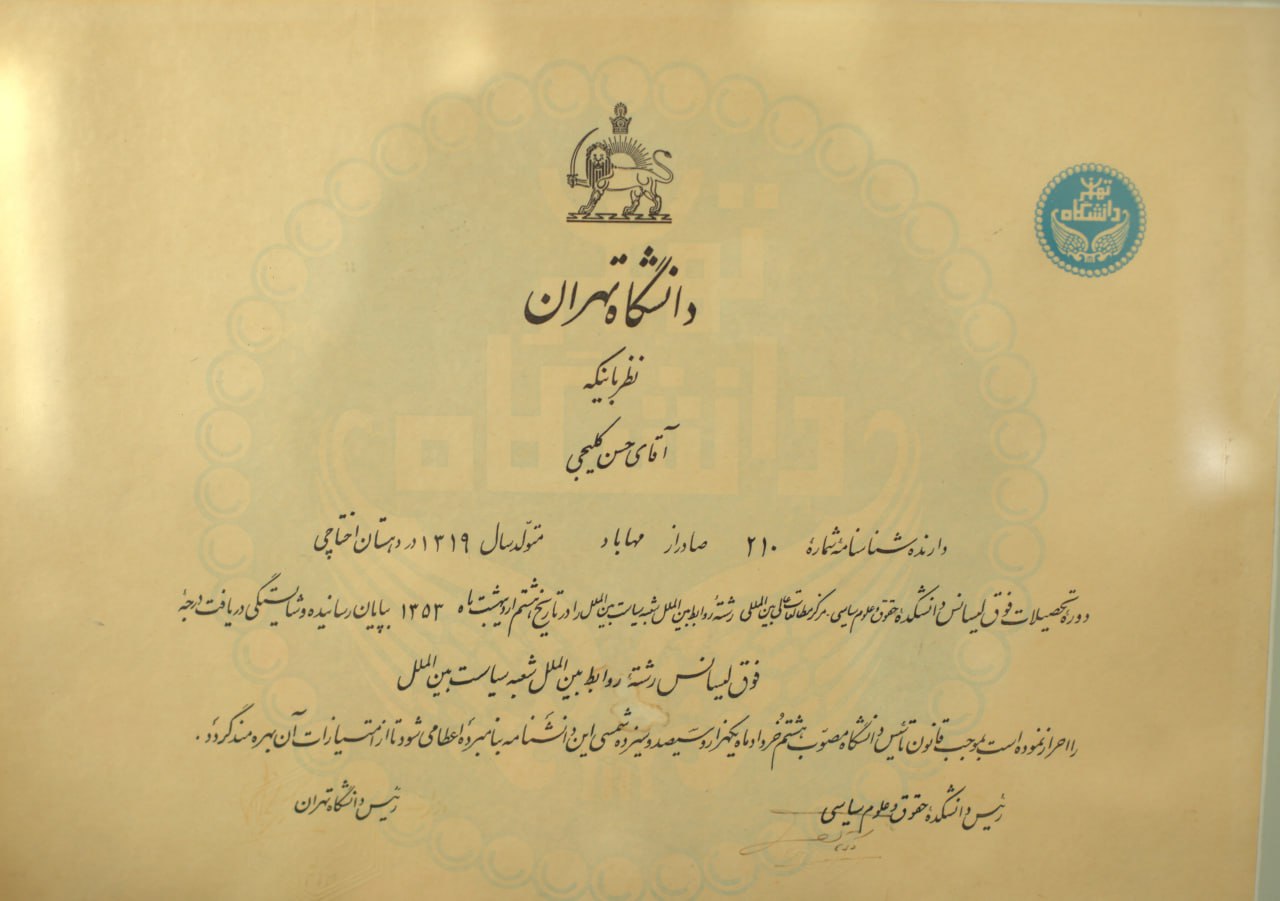 تهران
دانشگاه
دانشگاه تهران
نظر باینکه
آقای حسن کلیجی
دارنده شناسنامه شمارهٔ ۲۱۰ صادر از مهاباد متولّد سال ۱۳۱۹ در دهستان اختاچی
دورهٔ تحصیلات فوق لیسانس دانشکدهٔ حقوق و علوم سیاسی - مرکز مطالعات عالی بین‌المللی رشتهٔ روابط بین‌الملل شعبه سیاست بین‌الملل را در تاریخ هشتم اردیبهشت ماه ۱۳۵۳ بپایان رسانیده و شایستگی دریافت درجهٔ
فوق لیسانس رشتهٔ روابط بین‌الملل شعبه سیاست بین‌الملل
را احراز نموده است بموجب قانون تأسیس دانشگاه مصوّب هشتم خرداد ماه یکهزار و سیصد و سیزده شمسی این دانشنامه بنامبرده اعطا می شود تا از امتیازات آن بهره مند گردد.
رئیس دانشکدهٔ حقوق و علوم سیاسی
رئیس دانشگاه تهران